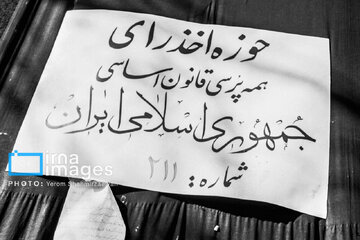 حوزه اخذ رای
همه پرسی قانون اساسی
جمهوری اسلامی ایران
شماره: ۲۱۱
irna
IMAGES
PHOTO: Yerom Shahm